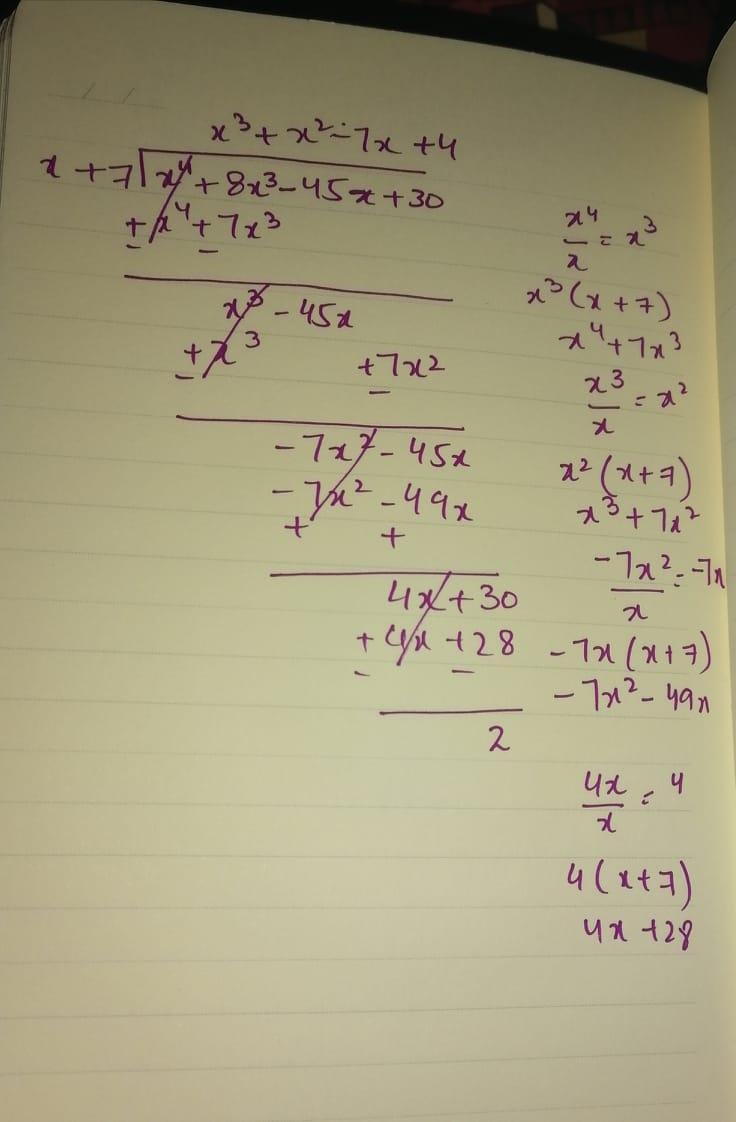 x³ + x² - 7x + 4
x + 7 x⁴ + 8x³ - 45x + 30
+ x⁴ + 7x³
- -
x³ - 45x
+ x³ + 7x²
- -
- 7x² - 45x
- 7x² - 49x
+ +
4x + 30
+ 4x + 28
- -
2
x⁴/x = x³
x³ (x + 7)
x⁴ + 7x³
x³/x = x²
x² (x + 7)
x³ + 7x²
-7x²/x = -7x
- 7x (x + 7)
- 7x² - 49x
4x/x = 4
4 (x + 7)
4x + 28